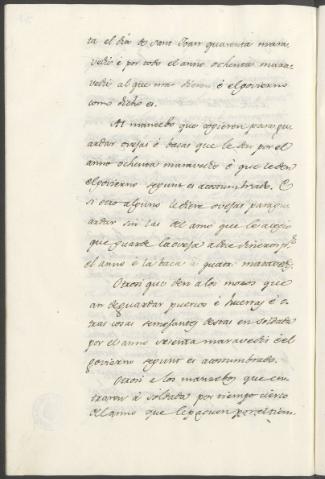 ta el dia de sant Joan quarenta mara-
vedis è por todo el anno ochenta mara-
vedis al que mas dieren è el govierno
como dicho es.
Al mancebo que cogieren para gu-
ardar ovejas è bacas que le den por el
anno ochenta maravedis è que le den
el govierno segunt es acostumbrado. E
si otro alguno le diere ovejas para gu-
ardar sin las del amo que le cogio
que guarde la oveja a dies dineros por
el anno è la baca à quatro maravedis.
Otrosi que den a los mozos que
an de guardar puercos è huertas è o-
tras cosas semejantes destas en soldada
por el anno sesenta maravedis è el
govierno segunt es acostumbrado.
Otrosi a los mancebos que en-
traren à soldada por tiempo cierto
del anno que les paguen por el tiem-